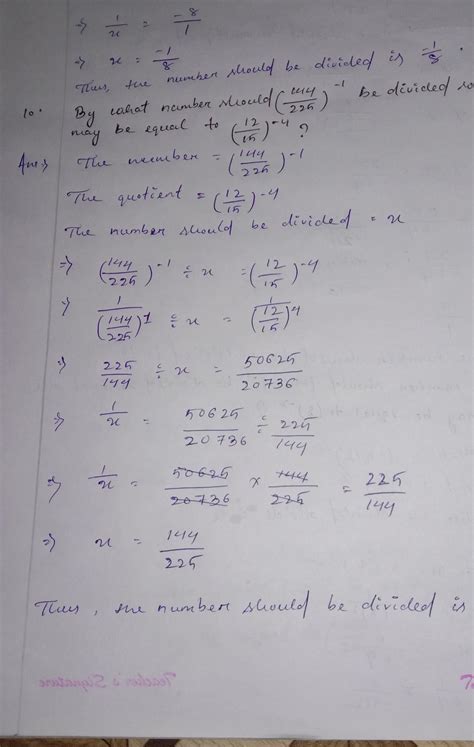 ⇒ 1/x = -8/1
⇒ x = -1/8
Thus, the number should be divided is -1/8.
10. By what number should (144/225)^-1 be divided so
may be equal to (12/15)^-4?
Ans⇒ The number = (144/225)^-1
The quotient = (12/15)^-4
The number should be divided = x
⇒ (144/225)^-1 ÷ x = (12/15)^-4
⇒ 1/(144/225)^1 ÷ x = 1/(12/15)^4
⇒ 225/144 ÷ x = 50625/20736
⇒ 1/x = 50625/20736 ÷ 225/144
⇒ 1/x = 50625/20736 × 144/225 = 225/144
⇒ x = 144/225
Thus, the number should be divided is
Teacher's Signature